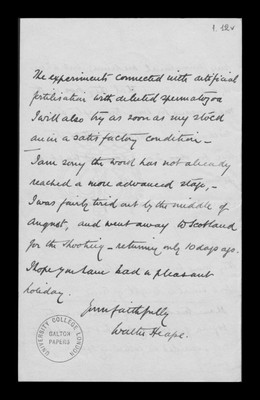 The experiments connected with artificial
fertilisation with diluted spermatozoa
I will also try as soon as my stock
are in a satisfactory condition –
I am sorry the work has not already
reached a more advanced stage, –
I was fairly tired out by the middle of
August, and went away to Scotland
for the shooting – returning only 10 days ago.
I hope you have had a pleasant
holiday.
Yours faithfully
Walter Heape.
UNIVERSITY COLLEGE LONDON
GALTON
PAPERS